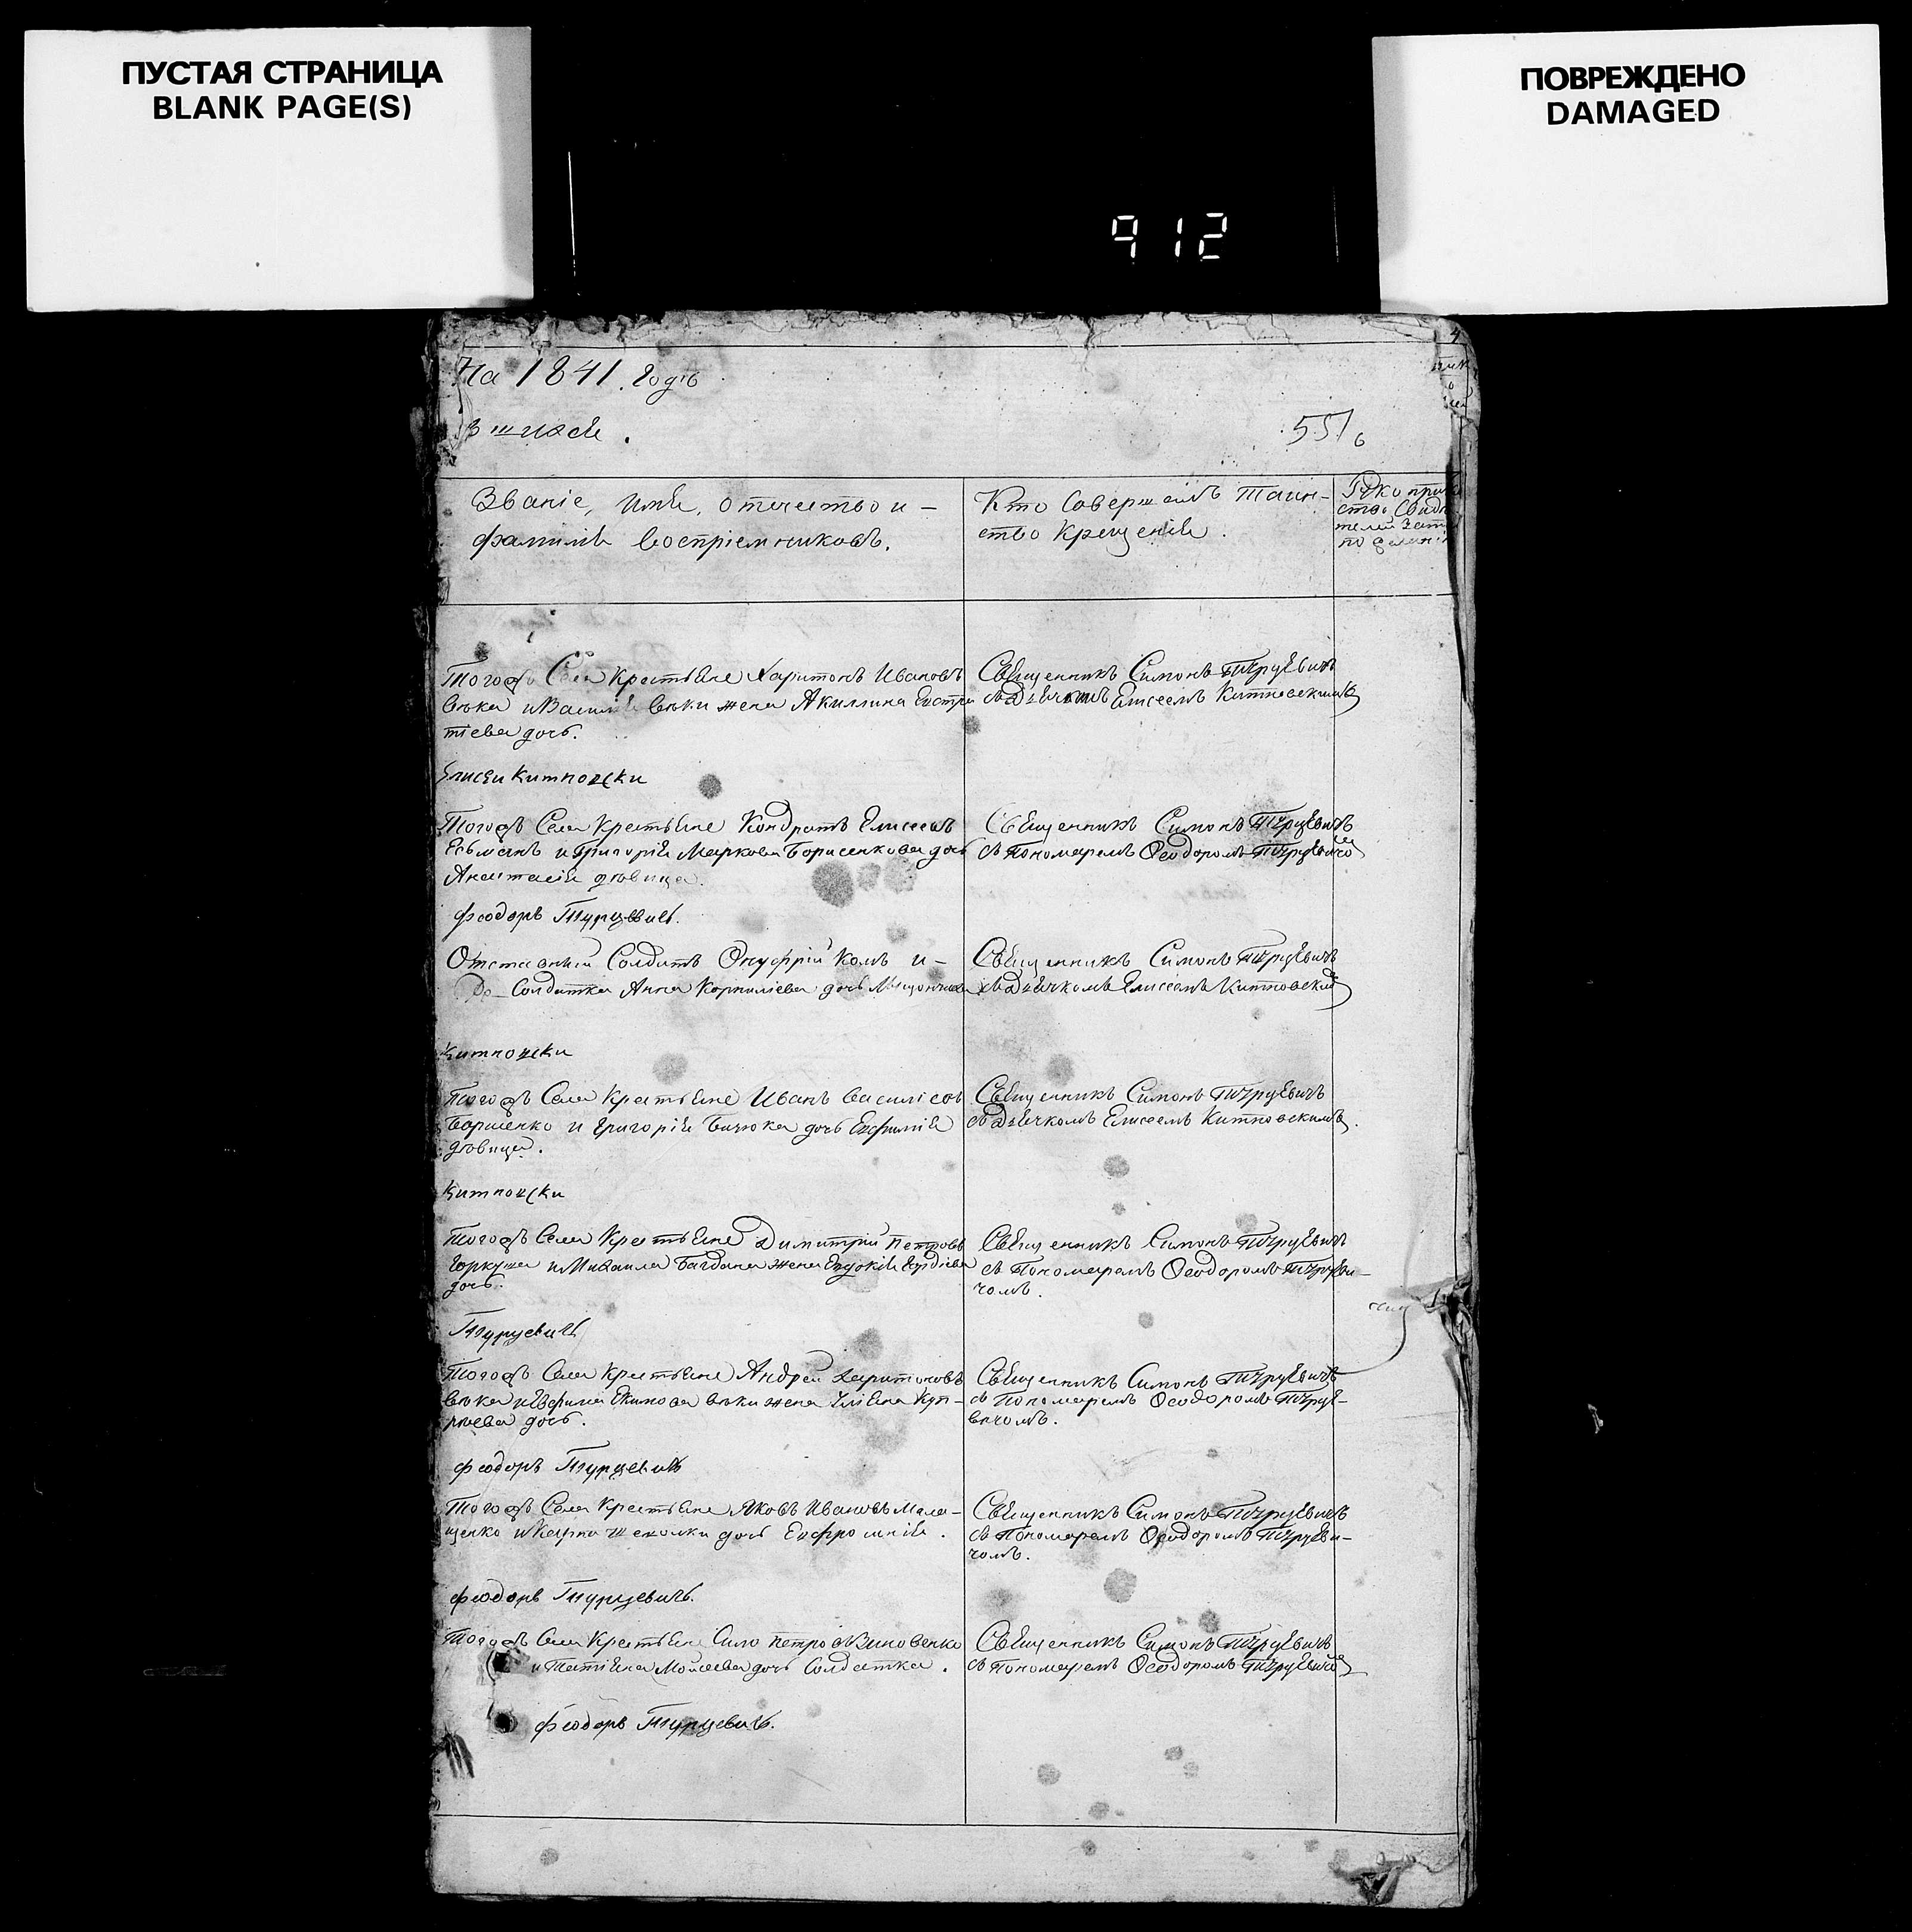 ПУСТАЯ СТРАНИЦА
BLANK PAGE(S)
ПОВРЕЖДЕНО
DAMAGED
912
На 1841. годъ
551
Званіе, имя, отчество и –
фамилія воспріемниковъ.
Кто Совершалъ Таин–
ство Крещенія.
Тогожъ Села Крестьяне Харитонъ Ивановъ
жена Акилина
тіева дочь.
Священникъ Симонъ Турцевичъ
съ Дьячкомъ Елисеемъ Китновскимъ
Елисей Китновски
Тогожъ Села Крестьяне Кондратъ Елисеевъ
и Григорія Маркова Борисенкова дочь
Анастасія дѣвица.
Священникъ Симонъ Турцевичъ
съ Пономаремъ Ѳеодоромъ Турцевичемъ
Феодоръ Турцевичъ.
Отставный Солдатъ Онуфрій Комъ и –
Солдатка Анна Корниліева дочь
Священникъ Симонъ Турцевичъ
съ Дьячкомъ Елисеемъ Китновским
Китновски
Тогожъ Села Крестьяне Иванъ Василіевъ
и Григорія Бичюка дочь Евфимія
дѣвица.
Священникъ Симонъ Турцевичъ
съ Дьячкомъ Елисеемъ Китновскимъ.
Китновски
Тогожъ Села Крестьяне Димитрій Петровъ
Горкуша и Михаила Багдана жена Евдокія
дочь.
Священникъ Симонъ Турцевичъ
съ Пономаремъ Ѳеодоромъ Турцеви–
чомъ.
Турцевичъ
Тогожъ Села Крестьяне Андрей Харитоновъ
жена
дочь.
Священникъ Симонъ Турцевичъ
съ Пономаремъ Ѳеодоромъ Турце–
вичомъ.
Феодоръ Турцевичъ
Тогожъ Села Крестьяне Яковъ Ивановъ Мала–
щенко и Карпа дочь Евфросинія.
Священникъ Симонъ Турцевичъ
съ Пономаремъ Ѳеодоромъ Турцеви–
чомъ.
Феодоръ Турцевичъ.
Тогожъ Села Крестьяне Сила Петровъ Зиновенко
и Татіяна Моисеева дочь Солдатка.
Священникъ Симонъ Турцевичъ
съ Пономаремъ Ѳеодоромъ Турцевичем
Феодоръ Турцевичъ.